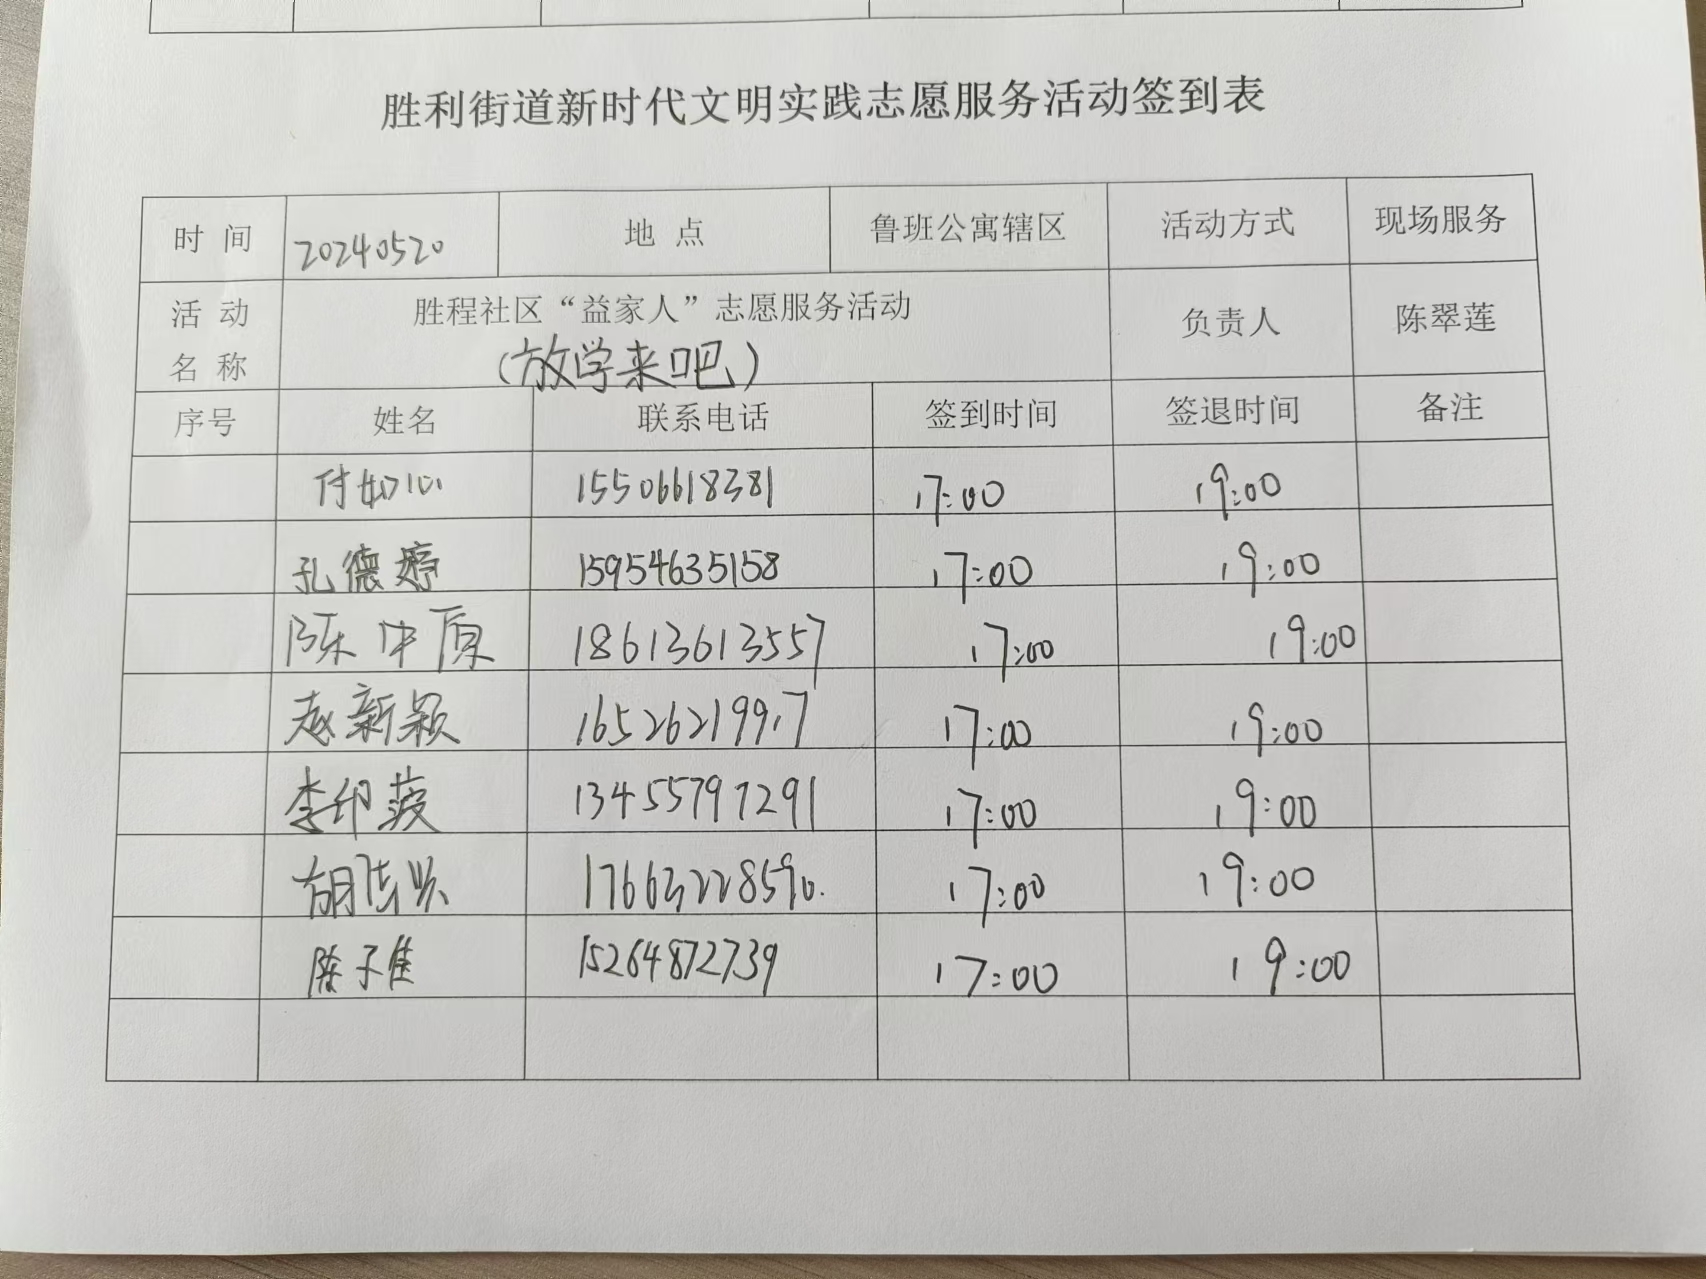 胜利街道新时代文明实践志愿服务活动签到表
时 间 20240520 地 点 鲁班公寓辖区 活动方式 现场服务
活 动 名 称 胜程社区“益家人”志愿服务活动 负责人 陈翠莲
(放学来吧)
序号 姓名 联系电话 签到时间 签退时间 备注
付如心 15506618381 17:00 19:00
孔德婷 15954635158 17:00 19:00
陈中原 18613613557 17:00 19:00
赵新颖 16526219917 17:00 19:00
李印菠 13455797291 17:00 19:00
17663228590 17:00 19:00
陈子佳 15264872739 17:00 19:00